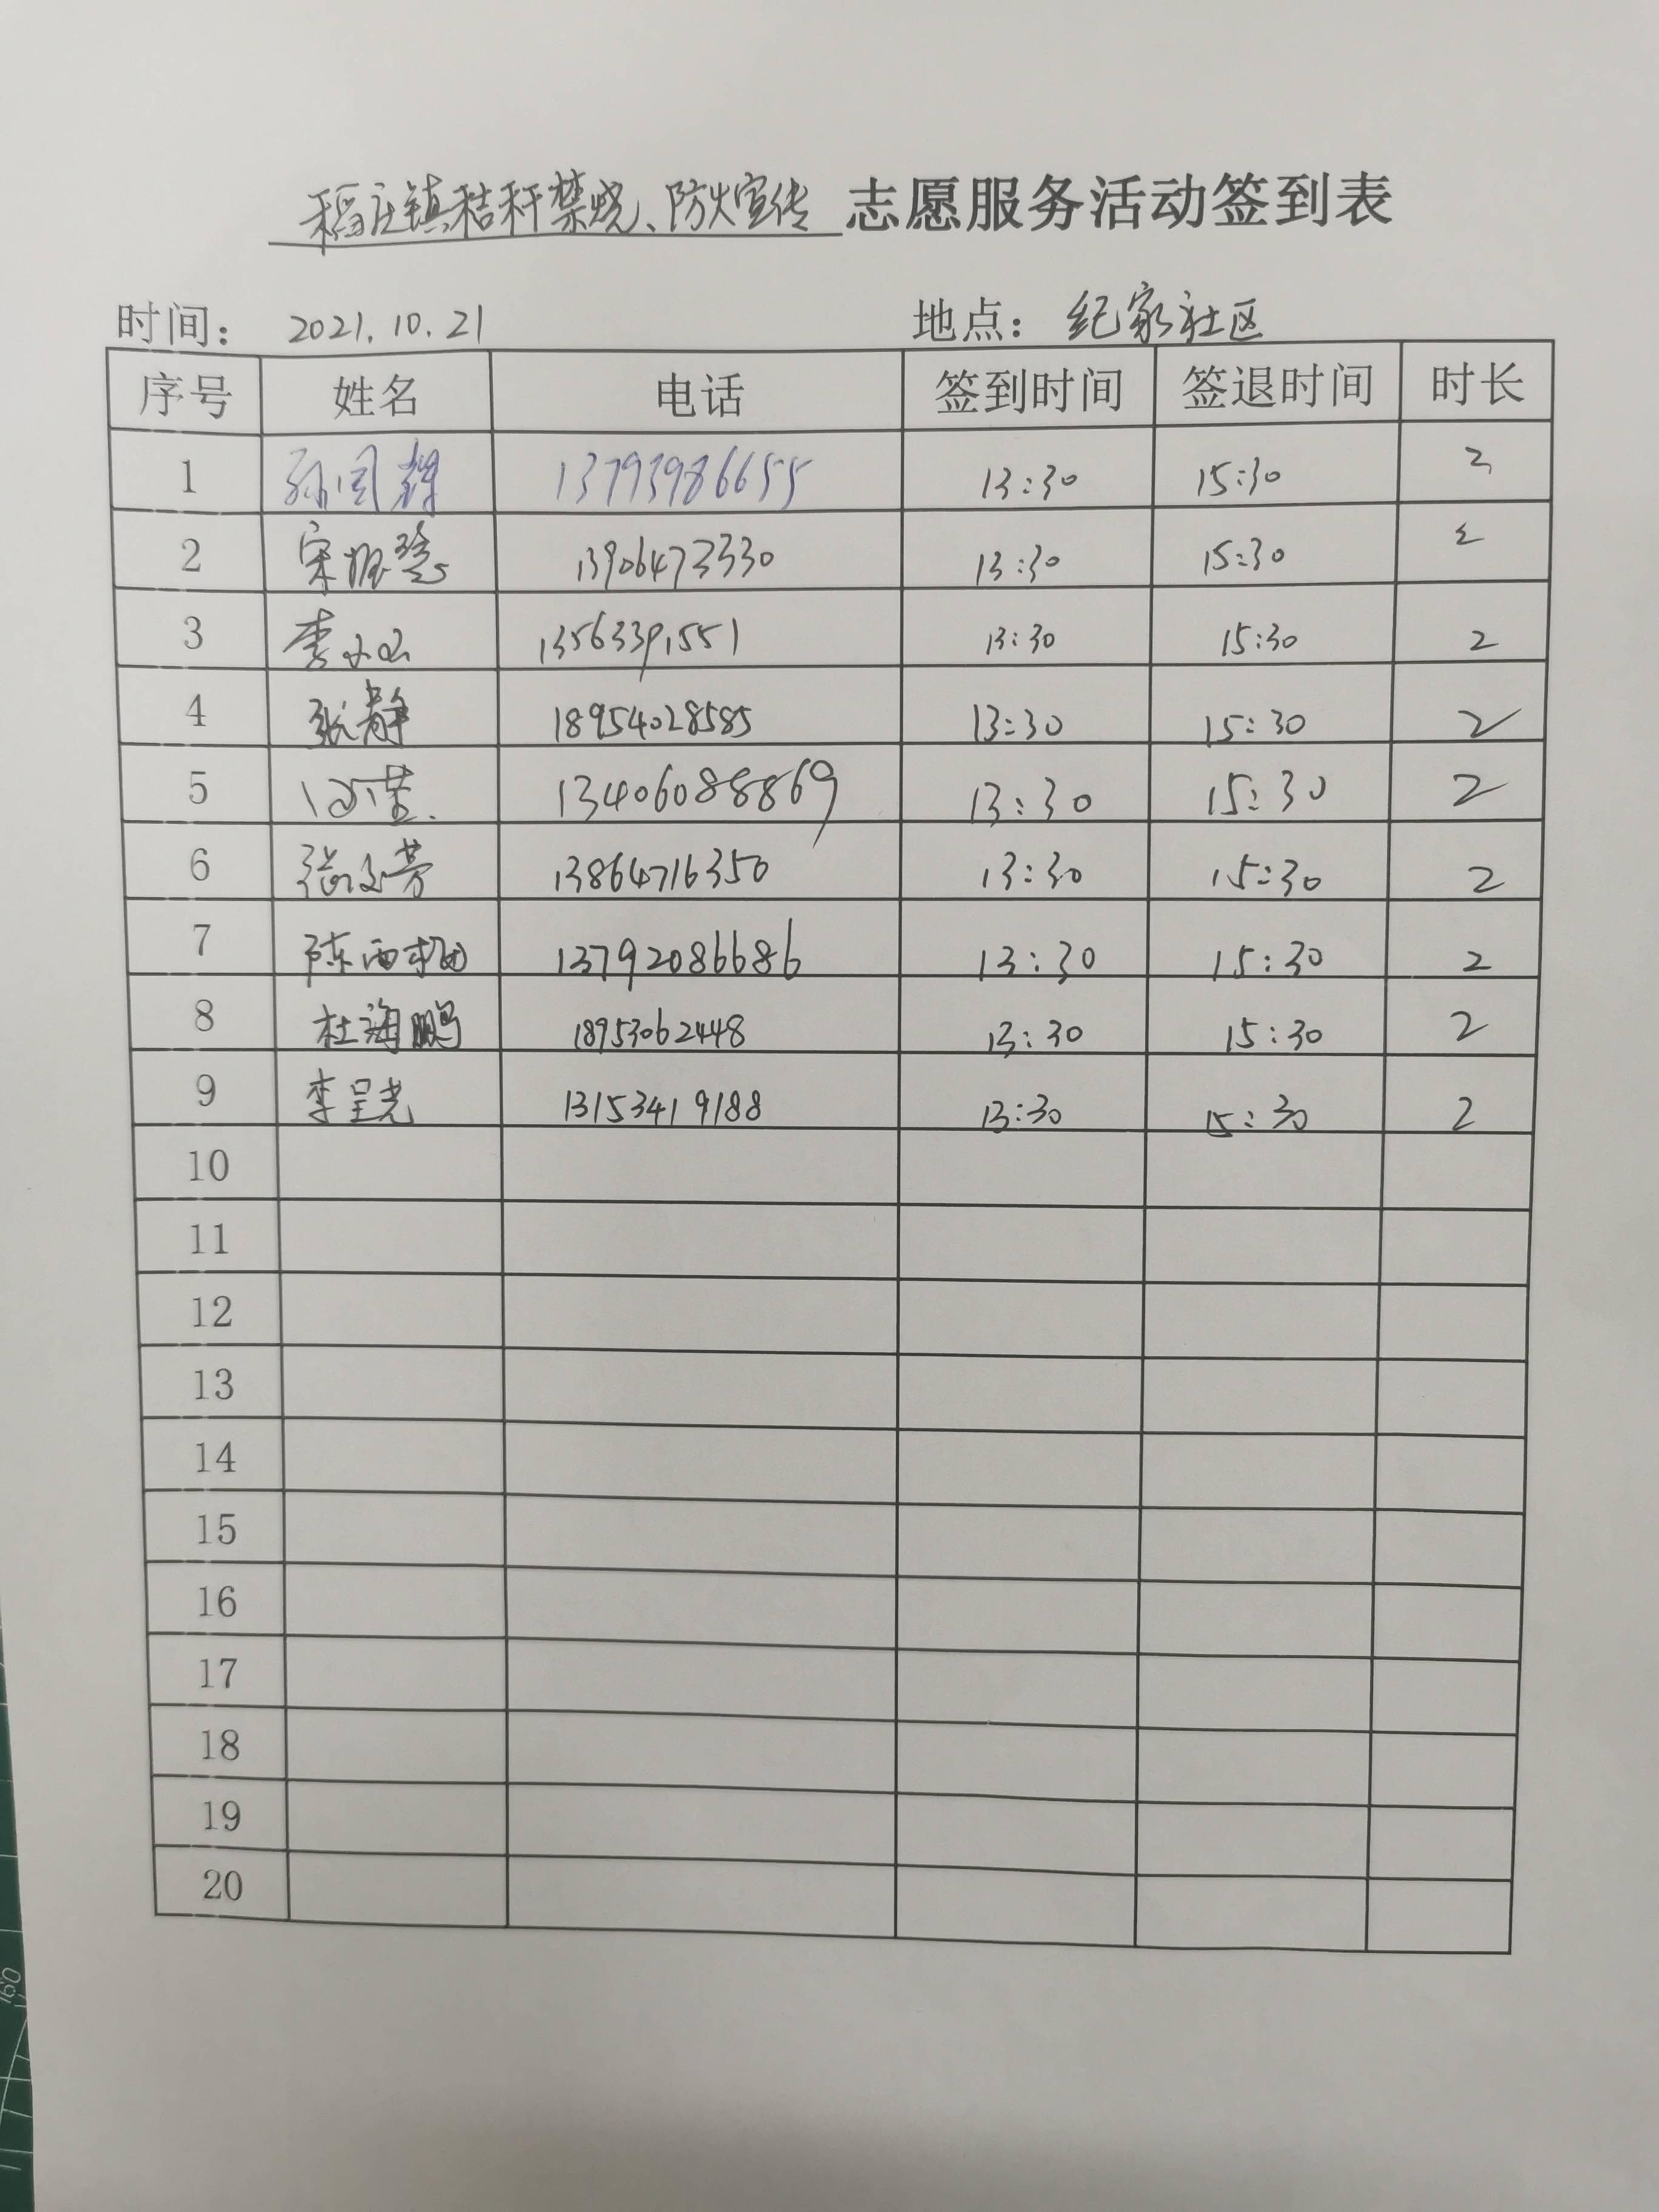 稻庄镇秸秆禁烧、防火宣传 志愿服务活动签到表
时间： 2021.10.21 地点： 纪家社区
序号 姓名 电话 签到时间 签退时间 时长
1 13793986655 13:30 15:30 2
2 13906473330 13:30 15:30 2
3 13563391551 13:30 15:30 2
4 张静 18954028585 13:30 15:30 2
5 13406088869 13:30 15:30 2
6 张文芳 13864716350 13:30 15:30 2
7 13792086686 13:30 15:30 2
8 杜海鹏 18953062448 13:30 15:30 2
9 李呈光 13153419188 13:30 15:30 2
10
11
12
13
14
15
16
17
18
19
20
160